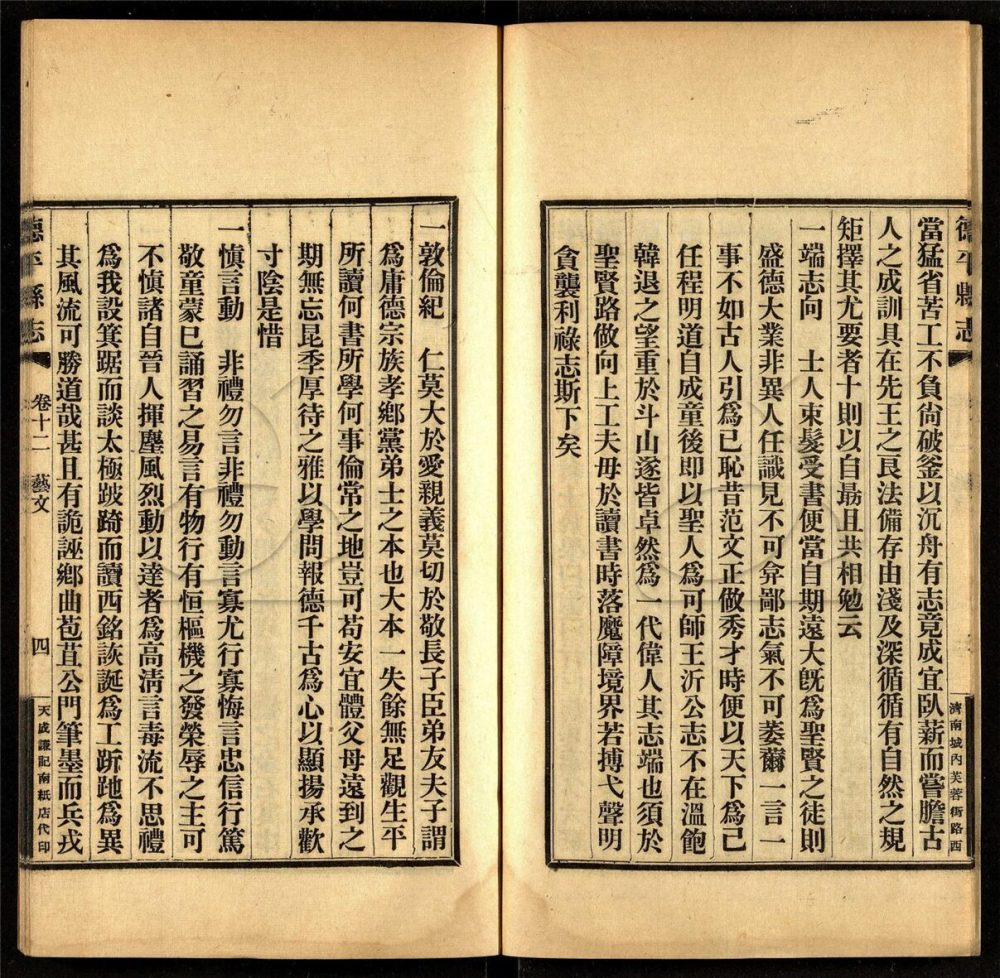 德平縣志
濟南城內芙蓉街路西
當猛省苦工不負尙破釜以沉舟有志竟成宜臥薪而嘗膽古
人之成訓具在先王之良法備存由淺及深循循有自然之規
矩擇其尤要者十則以自勗且共相勉云
一端志向　士人束髮受書便當自期遠大旣爲聖賢之徒則
盛德大業非異人任識見不可弇鄙志氣不可萎薾一言一
事不如古人引爲己恥昔范文正做秀才時便以天下爲己
任程明道自成童後即以聖人爲可師王沂公志不在溫飽
韓退之望重於斗山遂皆卓然爲一代偉人其志端也須於
聖賢路做向上工夫毋於讀書時落魔障境界若搏弋聲明
貪襲利祿志斯下矣
一敦倫紀　仁莫大於愛親義莫切於敬長子臣弟友夫子謂
爲庸德宗族孝鄕黨弟士之本也大本一失餘無足觀生平
所讀何書所學何事倫常之地豈可苟安宜體父母遠到之
期無忘昆季厚待之雅以學問報德千古爲心以顯揚承歡
寸陰是惜
一愼言動　非禮勿言非禮勿動言寡尤行寡悔言忠信行篤
敬童蒙已誦習之易言有物行有恒樞機之發榮辱之主可
不愼諸自晉人揮塵風烈動以達者爲高淸言毒流不思禮
爲我設箕踞而談太極跛踦而讀西銘詼誕爲工跅跎爲異
其風流可勝道哉甚且有詭誣鄕曲苞苴公門筆墨而兵戎
德平縣志
卷十二　藝文
四
天成謙記南紙店代印